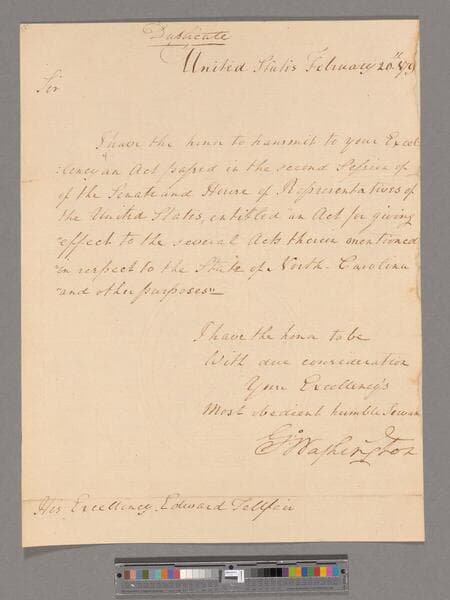 Duplicate
United States February 20th 179
Sir
I have the honor to transmit to your Excel
:lency an Act passed in the second Session of
of the Senate and House of Representatives of
the United States, entitled an Act for giving
"effect to the several Acts therein mentioned
"in respect to the State of North-Carolina
"and other purposes"
I have the honor to be
With due consideration
Your Excellency's
Most obedient humble Servan
Go Washington
His Excellency Edward Telfair